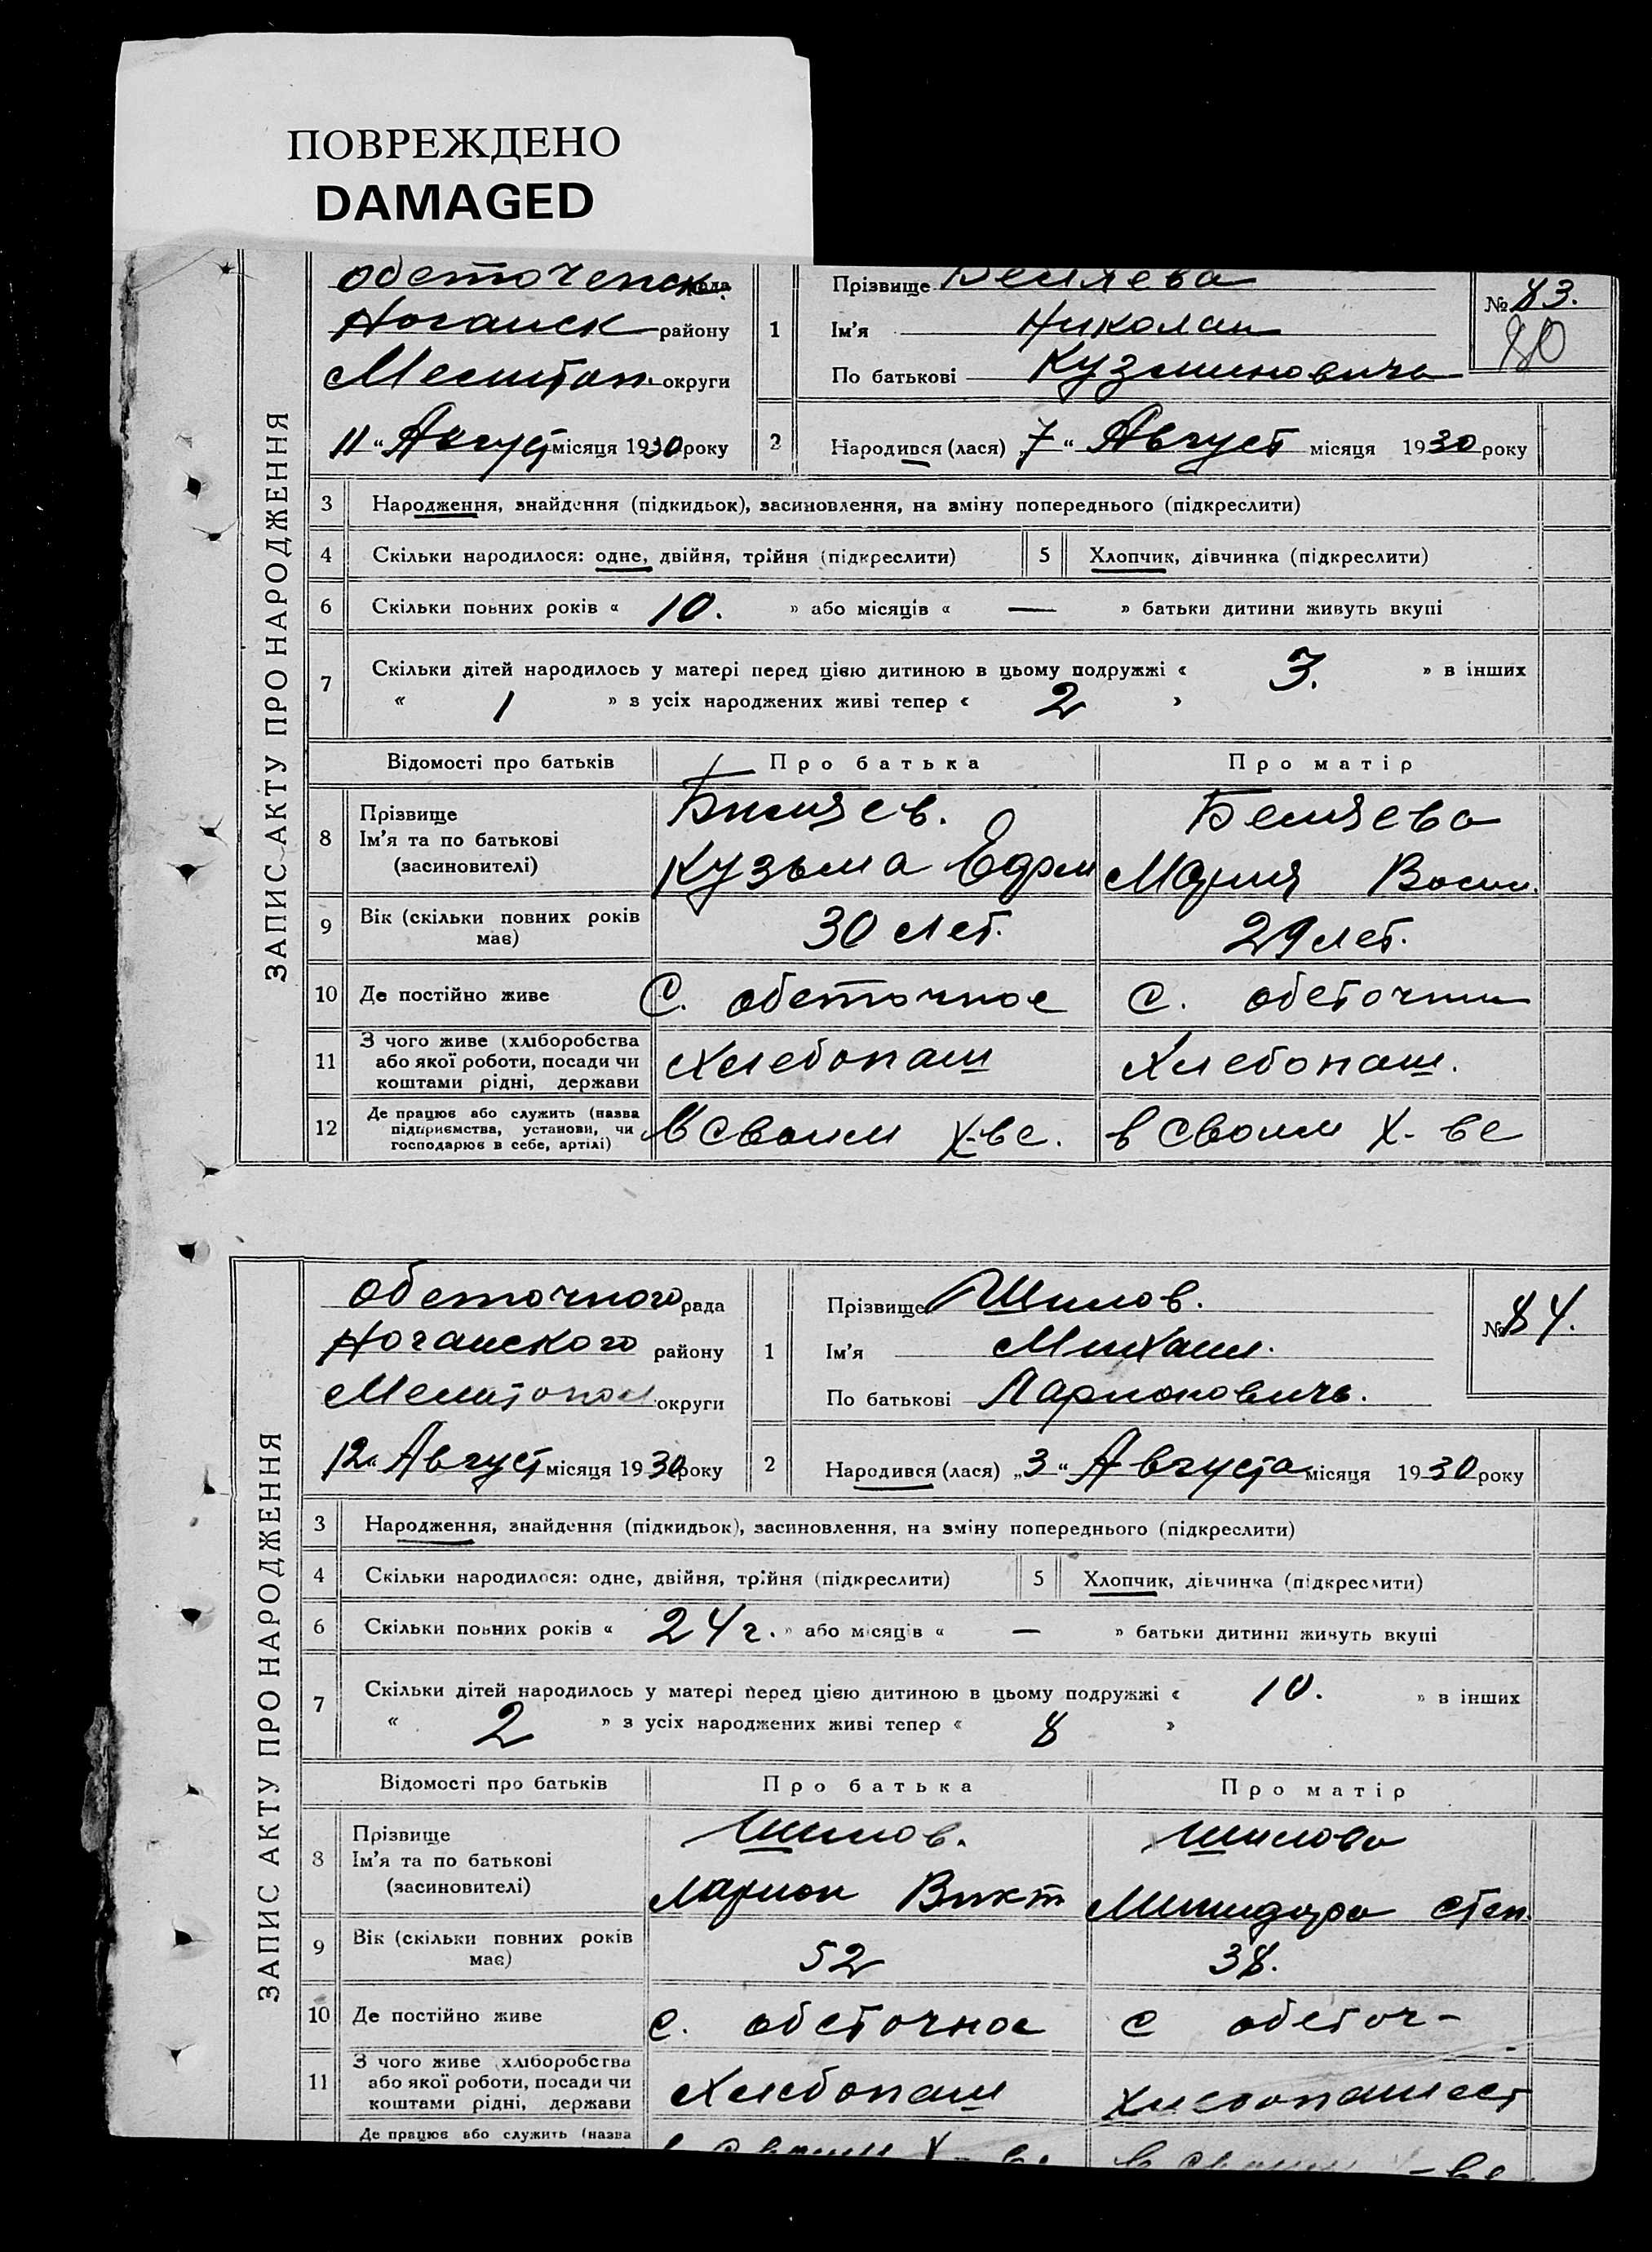 ПОВРЕЖДЕНО
DAMAGED
ЗАПИС АКТУ ПРО НАРОДЖЕННЯ
рада
Ногайск району
Мелитоп. округи
11 " Август місяця 1930 року
1 Прізвище Беляева
Ім'я Николай
По батькові Кузьминовичь
№ 83.
80
2 Народився (лася) „7" Август місяця 1930 року
3 Народження, знайдення (підкидьок), засиновлення, на зміну попереднього (підкреслити)
4 Скільки народилося: одне, двійня, трійня (підкреслити) 5 Хлопчик, дівчинка (підкреслити)
6 Скільки повних років « 10. » або місяців « — » батьки дитини живуть вкупі
7 Скільки дітей народилось у матері перед цією дитиною в цьому подружжі « 3. » в інших
« 1 » з усіх народжених живі тепер « 2 »
Відомості про батьків Про батька Про матір
8 Прізвище
Ім'я та по батькові
(засиновителі)
Беляев. Беляева
Кузьма Ефрм Мария Васил.
9 Вік (скільки повних років має) 30 лет. 29 лет.
10 Де постійно живе С. обеточное с. обеточни
11 З чого живе (хліборобства
або якої роботи, посади чи
коштами рідні, держави
Хлебопаш Хлебопаш.
12 Де працює або служить (назва
підприємства, установи, чи
господарює в себе, артілі)
В своим х-ве. в своим х-ве
ЗАПИС АКТУ ПРО НАРОДЖЕННЯ
обеточного рада
Ногайского району
Мелитопол округи
12 " Август місяця 1930 року
1 Прізвище Шилов.
Ім'я Михаил.
По батькові Ларионовичь.
№ 84.
2 Народився (лася) „3" Августа місяця 1930 року
3 Народження, знайдення (підкидьок), засиновлення, на зміну попереднього (підкреслити)
4 Скільки народилося: одне, двійня, трійня (підкреслити) 5 Хлопчик, дівчинка (підкреслити)
6 Скільки повних років « 24 г. » або місяців « — » батьки дитини живуть вкупі
7 Скільки дітей народилось у матері перед цією дитиною в цьому подружжі « 10. » в інших
« 2 » з усіх народжених живі тепер « 8 »
Відомості про батьків Про батька Про матір
8 Прізвище
Ім'я та по батькові
(засиновителі)
Шилов. Шилова
Ларион Викт Степ.
9 Вік (скільки повних років має) 52 38.
10 Де постійно живе с. обеточное с обеточ-
11 З чого живе хліборобства
або якої роботи, посади чи
коштами рідні, держави
Хлебопаш хлебопашест
Де працює або служить (назва
в своим х-ве в своим х-ве